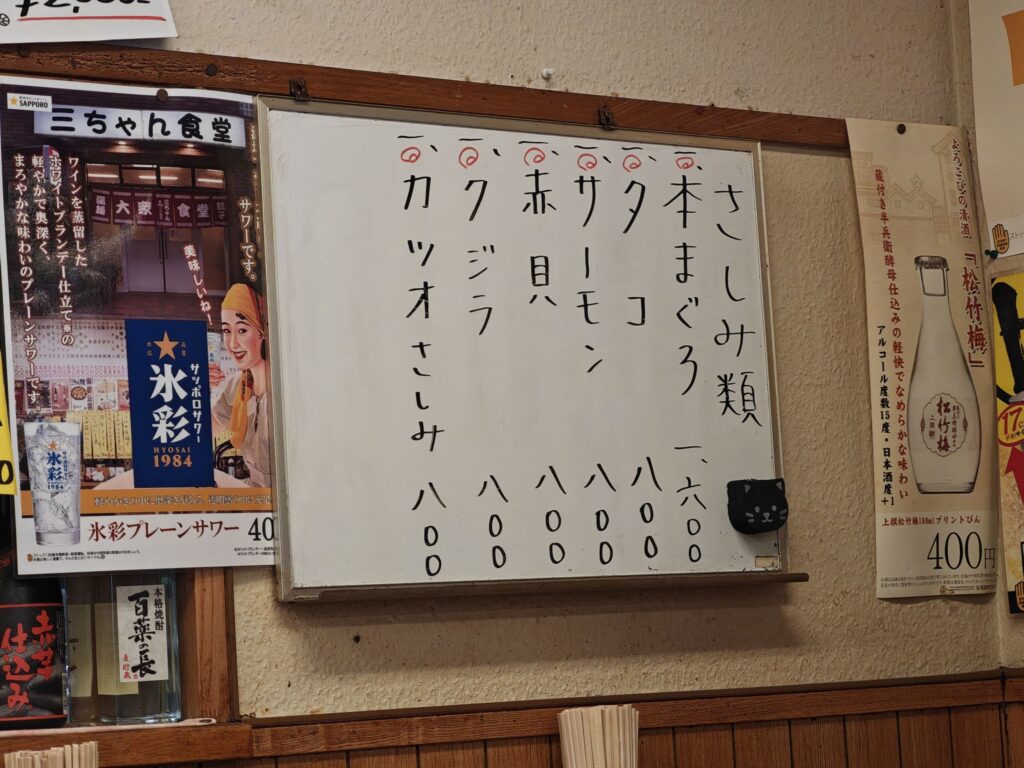 さしみ類
一、本まぐろ 一、六〇〇
一、タコ 八〇〇
一、サーモン 八〇〇
一、赤貝 八〇〇
一、クジラ 八〇〇
一、カツオさしみ 八〇〇
SAPPORO
三ちゃん食堂
大衆食堂
サワーです。
美味しいね
ワインを蒸留した
ホワイトブランデー仕立て※の
軽やかで奥深く、
まろやかな味わいのプレーンサワーです。
サッポロサワー
氷彩
HYOSAI
1984
氷彩
1984
氷彩プレーンサワー 40
本格焼酎
百薬の長
麦貯蔵
赤芋
仕込み
よろこびの清酒
「松竹梅」
蔵付き半兵衛酵母仕込みの軽快でなめらかな味わい
アルコール度数15度・日本酒度+1
松竹梅
上撰
上撰松竹梅[180ml]プリントびん
400円
17